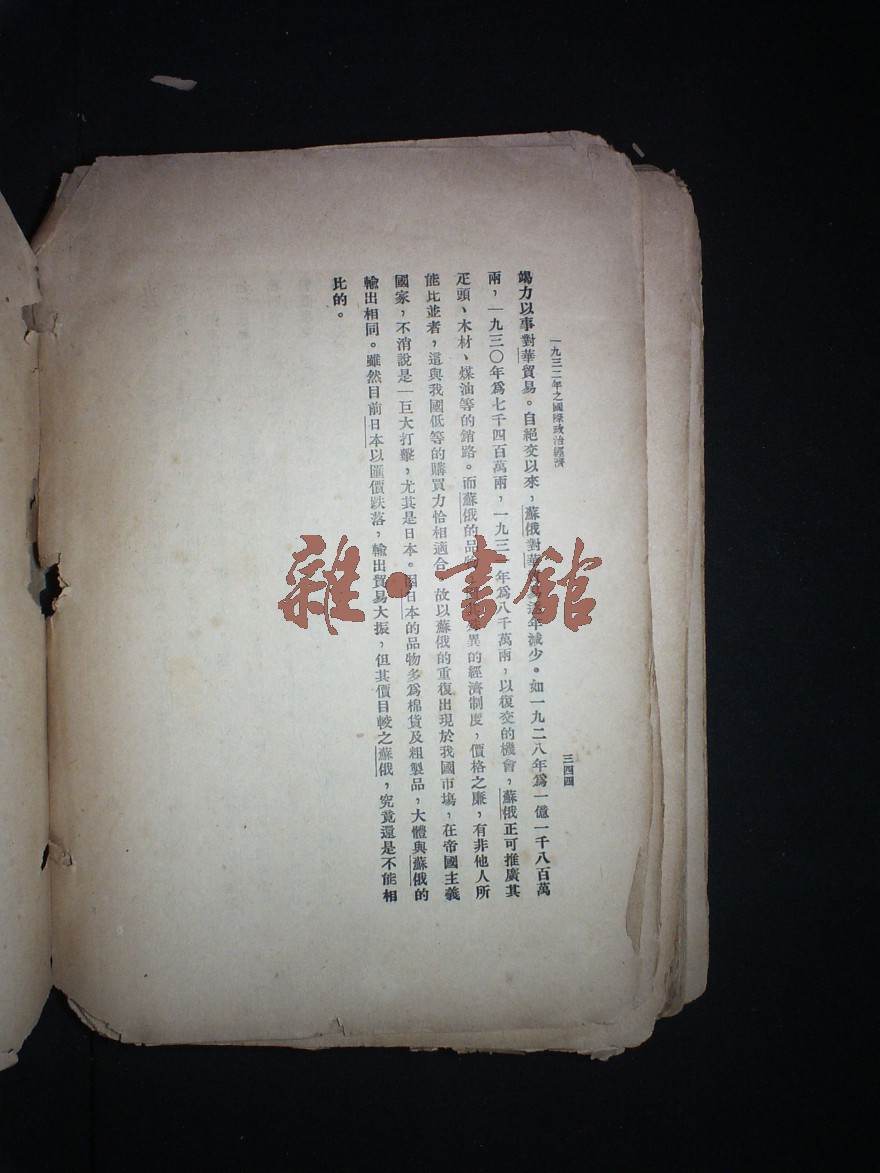 一九三二年之國際政治經濟
三四四
竭力以事對華貿易。自絕交以來，蘇俄對華年減少。如一九二八年爲一億一千八百萬
兩，一九三〇年爲七千四百萬兩，一九三年爲八千萬兩，以復交的機會，蘇俄正可推廣其
疋頭、木材、煤油等的銷路。而蘇俄的品異的經濟制度，價格之廉，有非他人所
能比並者，這與我國低等的購買力恰相適合故以蘇俄的重復出現於我國市場，在帝國主義
國家，不消說是一巨大打擊，尤其是日本。因日本的品物多爲棉貨及粗製品，大體與蘇俄的
輸出相同。雖然目前日本以匯價跌落，輸出貿易大振，但其價目較之蘇俄，究竟還是不能相
比的。
雜·書館